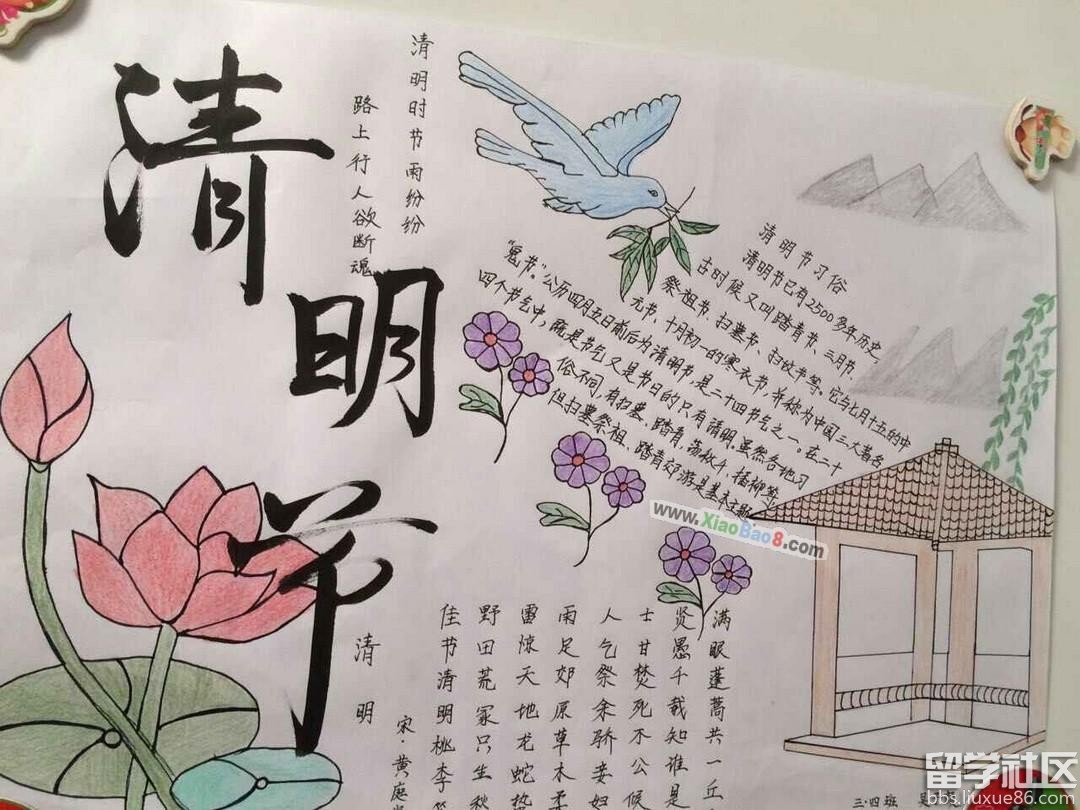 清明节
清明时节雨纷纷
路上行人欲断魂
清明节习俗
清明节已有2500多年历史,
古时候又叫踏青节、三月节、
祭祖节、扫墓节、扫坟节等。它与七月十五的中
元节、十月初一的寒衣节,并称为中国三大著名
"鬼节"。公历四月五日前后为清明节,是二十四节气之一。在二十
四个节气中,既是节气又是节日的只有清明。虽然各地习
俗不同,有扫墓、踏青、荡秋千、插柳等,
但扫墓祭祖、踏青郊游是基本主题
www.XiaoBao8.com
清明
宋·黄庭
佳节清明桃李
野田荒冢只生
雷惊天地龙蛇蛰
雨足郊原草木柔
人乞祭余骄妾妇
士甘焚死不公侯
贤愚千载知谁是
满眼蓬蒿共一丘
三·四班
留学社区
bbs.liuxue86.com